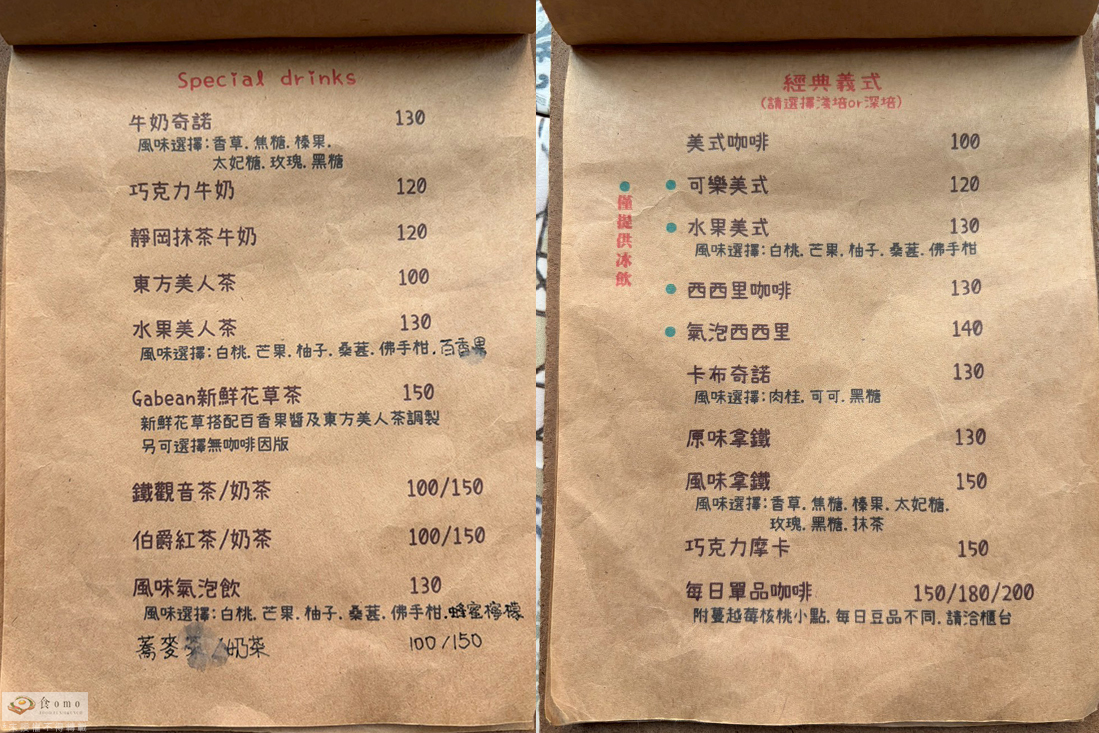 Special drinks
牛奶奇諾 130
風味選擇:香草.焦糖.榛果.
太妃糖.玫瑰.黑糖
巧克力牛奶 120
靜岡抹茶牛奶 120
東方美人茶 100
水果美人茶 130
風味選擇:白桃.芒果.柚子.桑葚.佛手柑.百香果
Gabean新鮮花草茶 150
新鮮花草搭配百香果醬及東方美人茶調製
另可選擇無咖啡因版
鐵觀音茶/奶茶 100/150
伯爵紅茶/奶茶 100/150
風味氣泡飲 130
風味選擇:白桃.芒果.柚子.桑葚.佛手柑.蜂蜜檸檬
蕎麥茶/奶茶 100/150
食omo
經典義式
(請選擇淺培or深培)
美式咖啡 100
●僅提供冰飲
●可樂美式 120
●水果美式 130
風味選擇:白桃.芒果.柚子.桑葚.佛手柑
●西西里咖啡 130
●氣泡西西里 140
卡布奇諾 130
風味選擇:肉桂.可可.黑糖
原味拿鐵 130
風味拿鐵 150
風味選擇:香草.焦糖.榛果.太妃糖.
玫瑰.黑糖.抹茶
巧克力摩卡 150
每日單品咖啡 150/180/200
附蔓越莓核桃小點.每日豆品不同.請洽櫃台